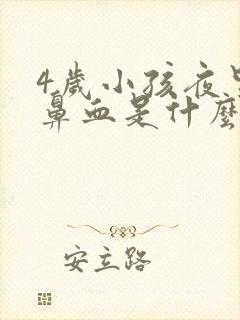 4歲小孩夜
鼻血是什麼
安立路